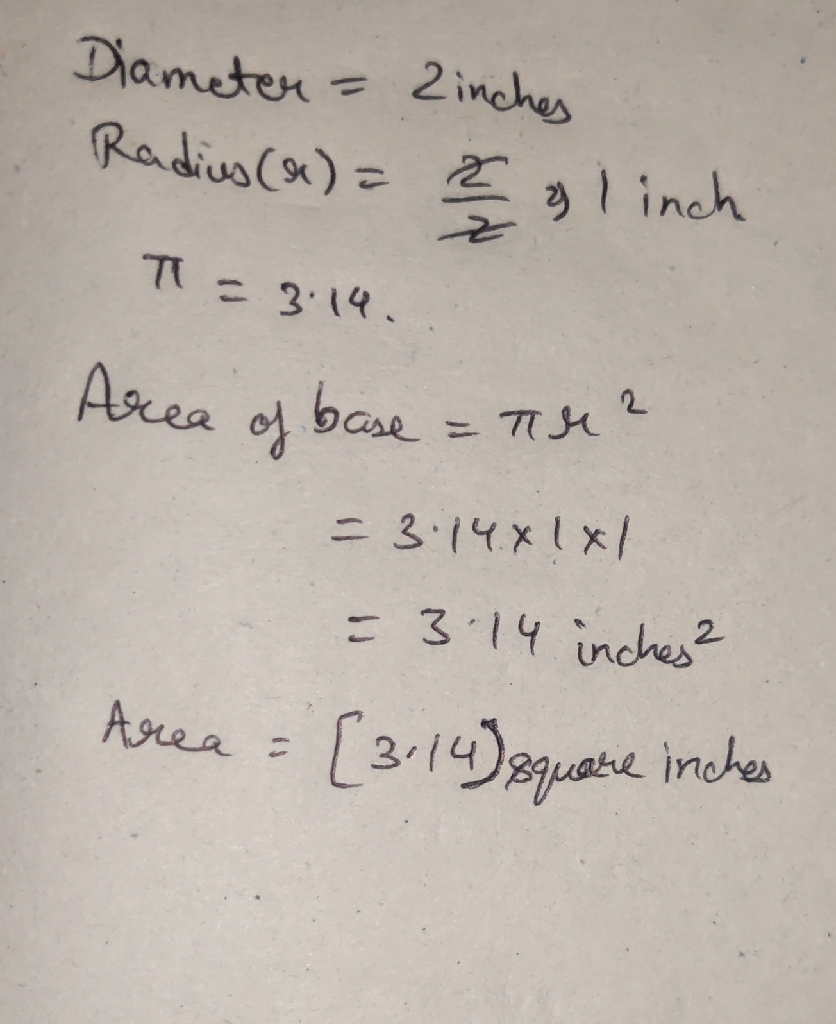 Diameter = 2 inches
Radius(r) = 2/2 ⇒ 1 inch
π = 3.14.
Area of base = πr²
= 3.14 x 1 x 1
= 3.14 inches²
Area = [3.14] square inches